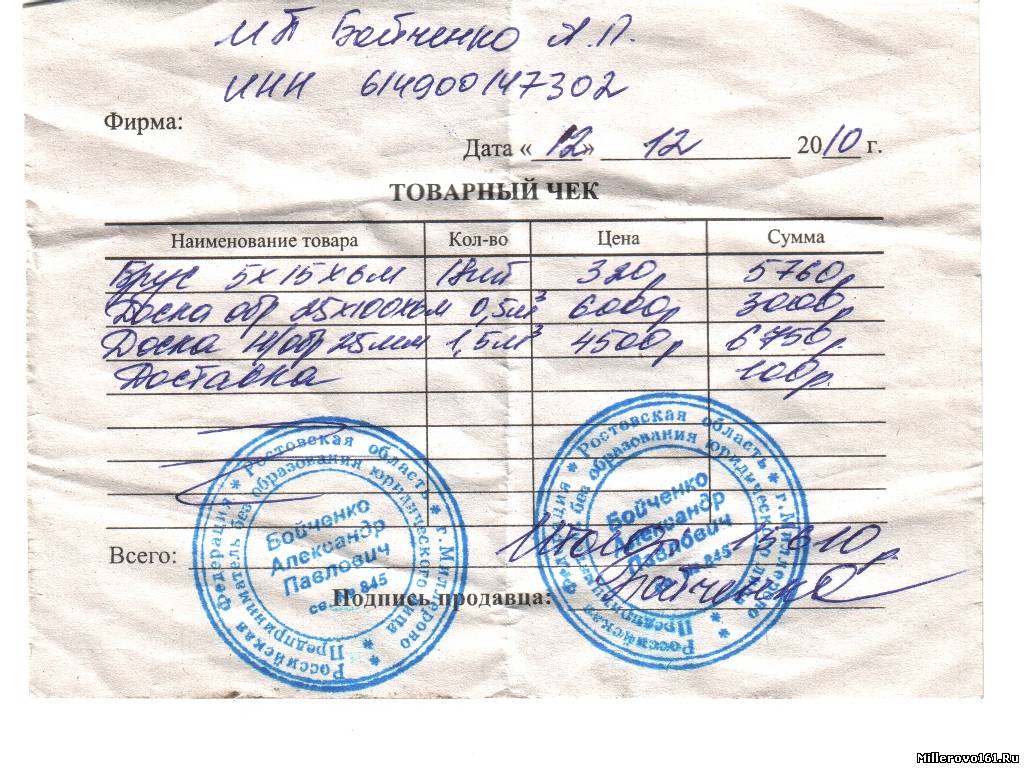 ИП Бойченко А.П.
ИНН 614900147302
Фирма:
Дата «12» 12 2010 г.
ТОВАРНЫЙ ЧЕК
Наименование товара Кол-во Цена Сумма
Брус 5х15х6м 18шт 320р 5760р
Доска обр 25х100х6м 0,5м³ 6000р 3000р.
Доска н/обр 25мм 1,5м³ 4500р 6750р.
Доставка 100р.
Всего: Итого 15610р
Подпись продавца: Бойченко
Российская Федерация * Ростовская область * г.Миллерово *
Предприниматель без образования юридического лица *
Бойченко
Александр
Павлович
св. № 845
Российская Федерация * Ростовская область * г.Миллерово *
Предприниматель без образования юридического лица *
Бойченко
Александр
Павлович
св. № 845
Millerovo161.Ru